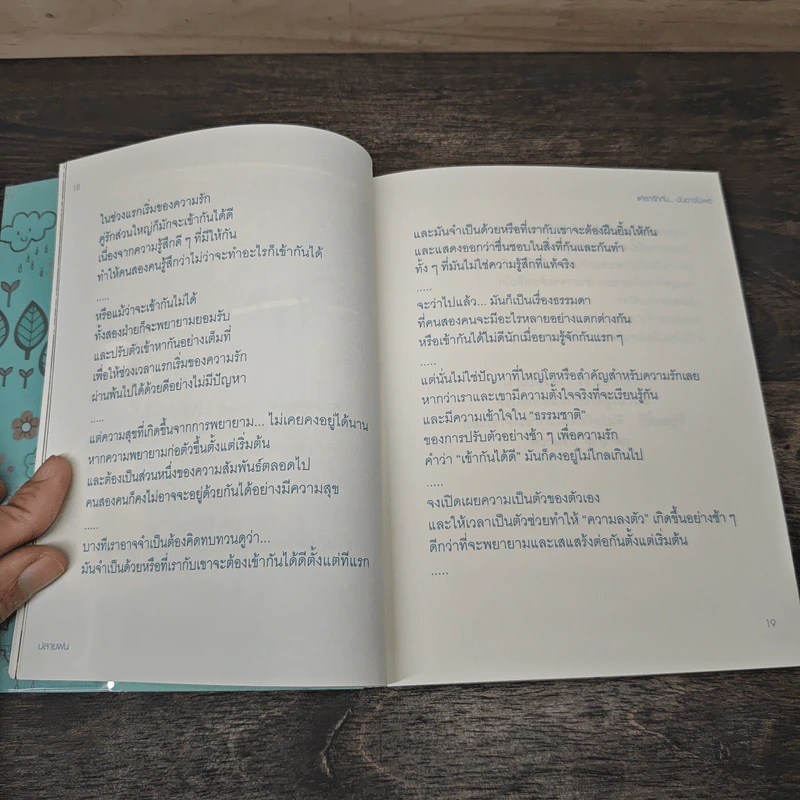 18
ในช่วงแรกเริ่มของความรัก
คู่รักส่วนใหญ่ก็มักจะเข้ากันได้ดี
เนื่องจากความรู้สึกดี ๆ ที่มีให้กัน
ทำให้คนสองคนรู้สึกว่าไม่ว่าจะทำอะไรก็เข้ากันได้
.....
หรือแม้ว่าจะเข้ากันไม่ได้
ทั้งสองฝ่ายก็จะพยายามยอมรับ
และปรับตัวเข้าหากันอย่างเต็มที่
เพื่อให้ช่วงเวลาแรกเริ่มของความรัก
ผ่านพ้นไปได้ด้วยดีอย่างไม่มีปัญหา
.....
แต่ความสุขที่เกิดขึ้นจากการพยายาม... ไม่เคยคงอยู่ได้นาน
หากความพยายามก่อตัวขึ้นตั้งแต่เริ่มต้น
และต้องเป็นส่วนหนึ่งของความสัมพันธ์ตลอดไป
คนสองคนก็คงไม่อาจจะอยู่ด้วยกันได้อย่างมีความสุข
.....
บางทีเราอาจจำเป็นต้องคิดทบทวนดูว่า...
มันจำเป็นด้วยหรือที่เรากับเขาจะต้องเข้ากันได้ดีตั้งแต่ทีแรก
ปลายฝน
แค่เรารักกัน... มันอาจไม่พอ
และมันจำเป็นด้วยหรือที่เรากับเขาจะต้องฝืนยิ้มให้กัน
และแสดงออกว่าชื่นชอบในสิ่งที่กันและกันทำ
ทั้ง ๆ ที่มันไม่ใช่ความรู้สึกที่แท้จริง
.....
จะว่าไปแล้ว... มันก็เป็นเรื่องธรรมดา
ที่คนสองคนจะมีอะไรหลายอย่างแตกต่างกัน
หรือเข้ากันได้ไม่ดีนักเมื่อยามรู้จักกันแรก ๆ
.....
แต่นั่นไม่ใช่ปัญหาที่ใหญ่โตหรือสำคัญสำหรับความรักเลย
หากว่าเราและเขามีความตั้งใจจริงที่จะเรียนรู้กัน
และมีความเข้าใจใน "ธรรมชาติ"
ของการปรับตัวอย่างช้า ๆ เพื่อความรัก
คำว่า "เข้ากันได้ดี" มันก็คงอยู่ไม่ไกลเกินไป
.....
จงเปิดเผยความเป็นตัวของตัวเอง
และให้เวลาเป็นตัวช่วยทำให้ "ความลงตัว" เกิดขึ้นอย่างช้า ๆ
ดีกว่าที่จะพยายามและเสแสร้งต่อกันตั้งแต่เริ่มต้น
.....
19